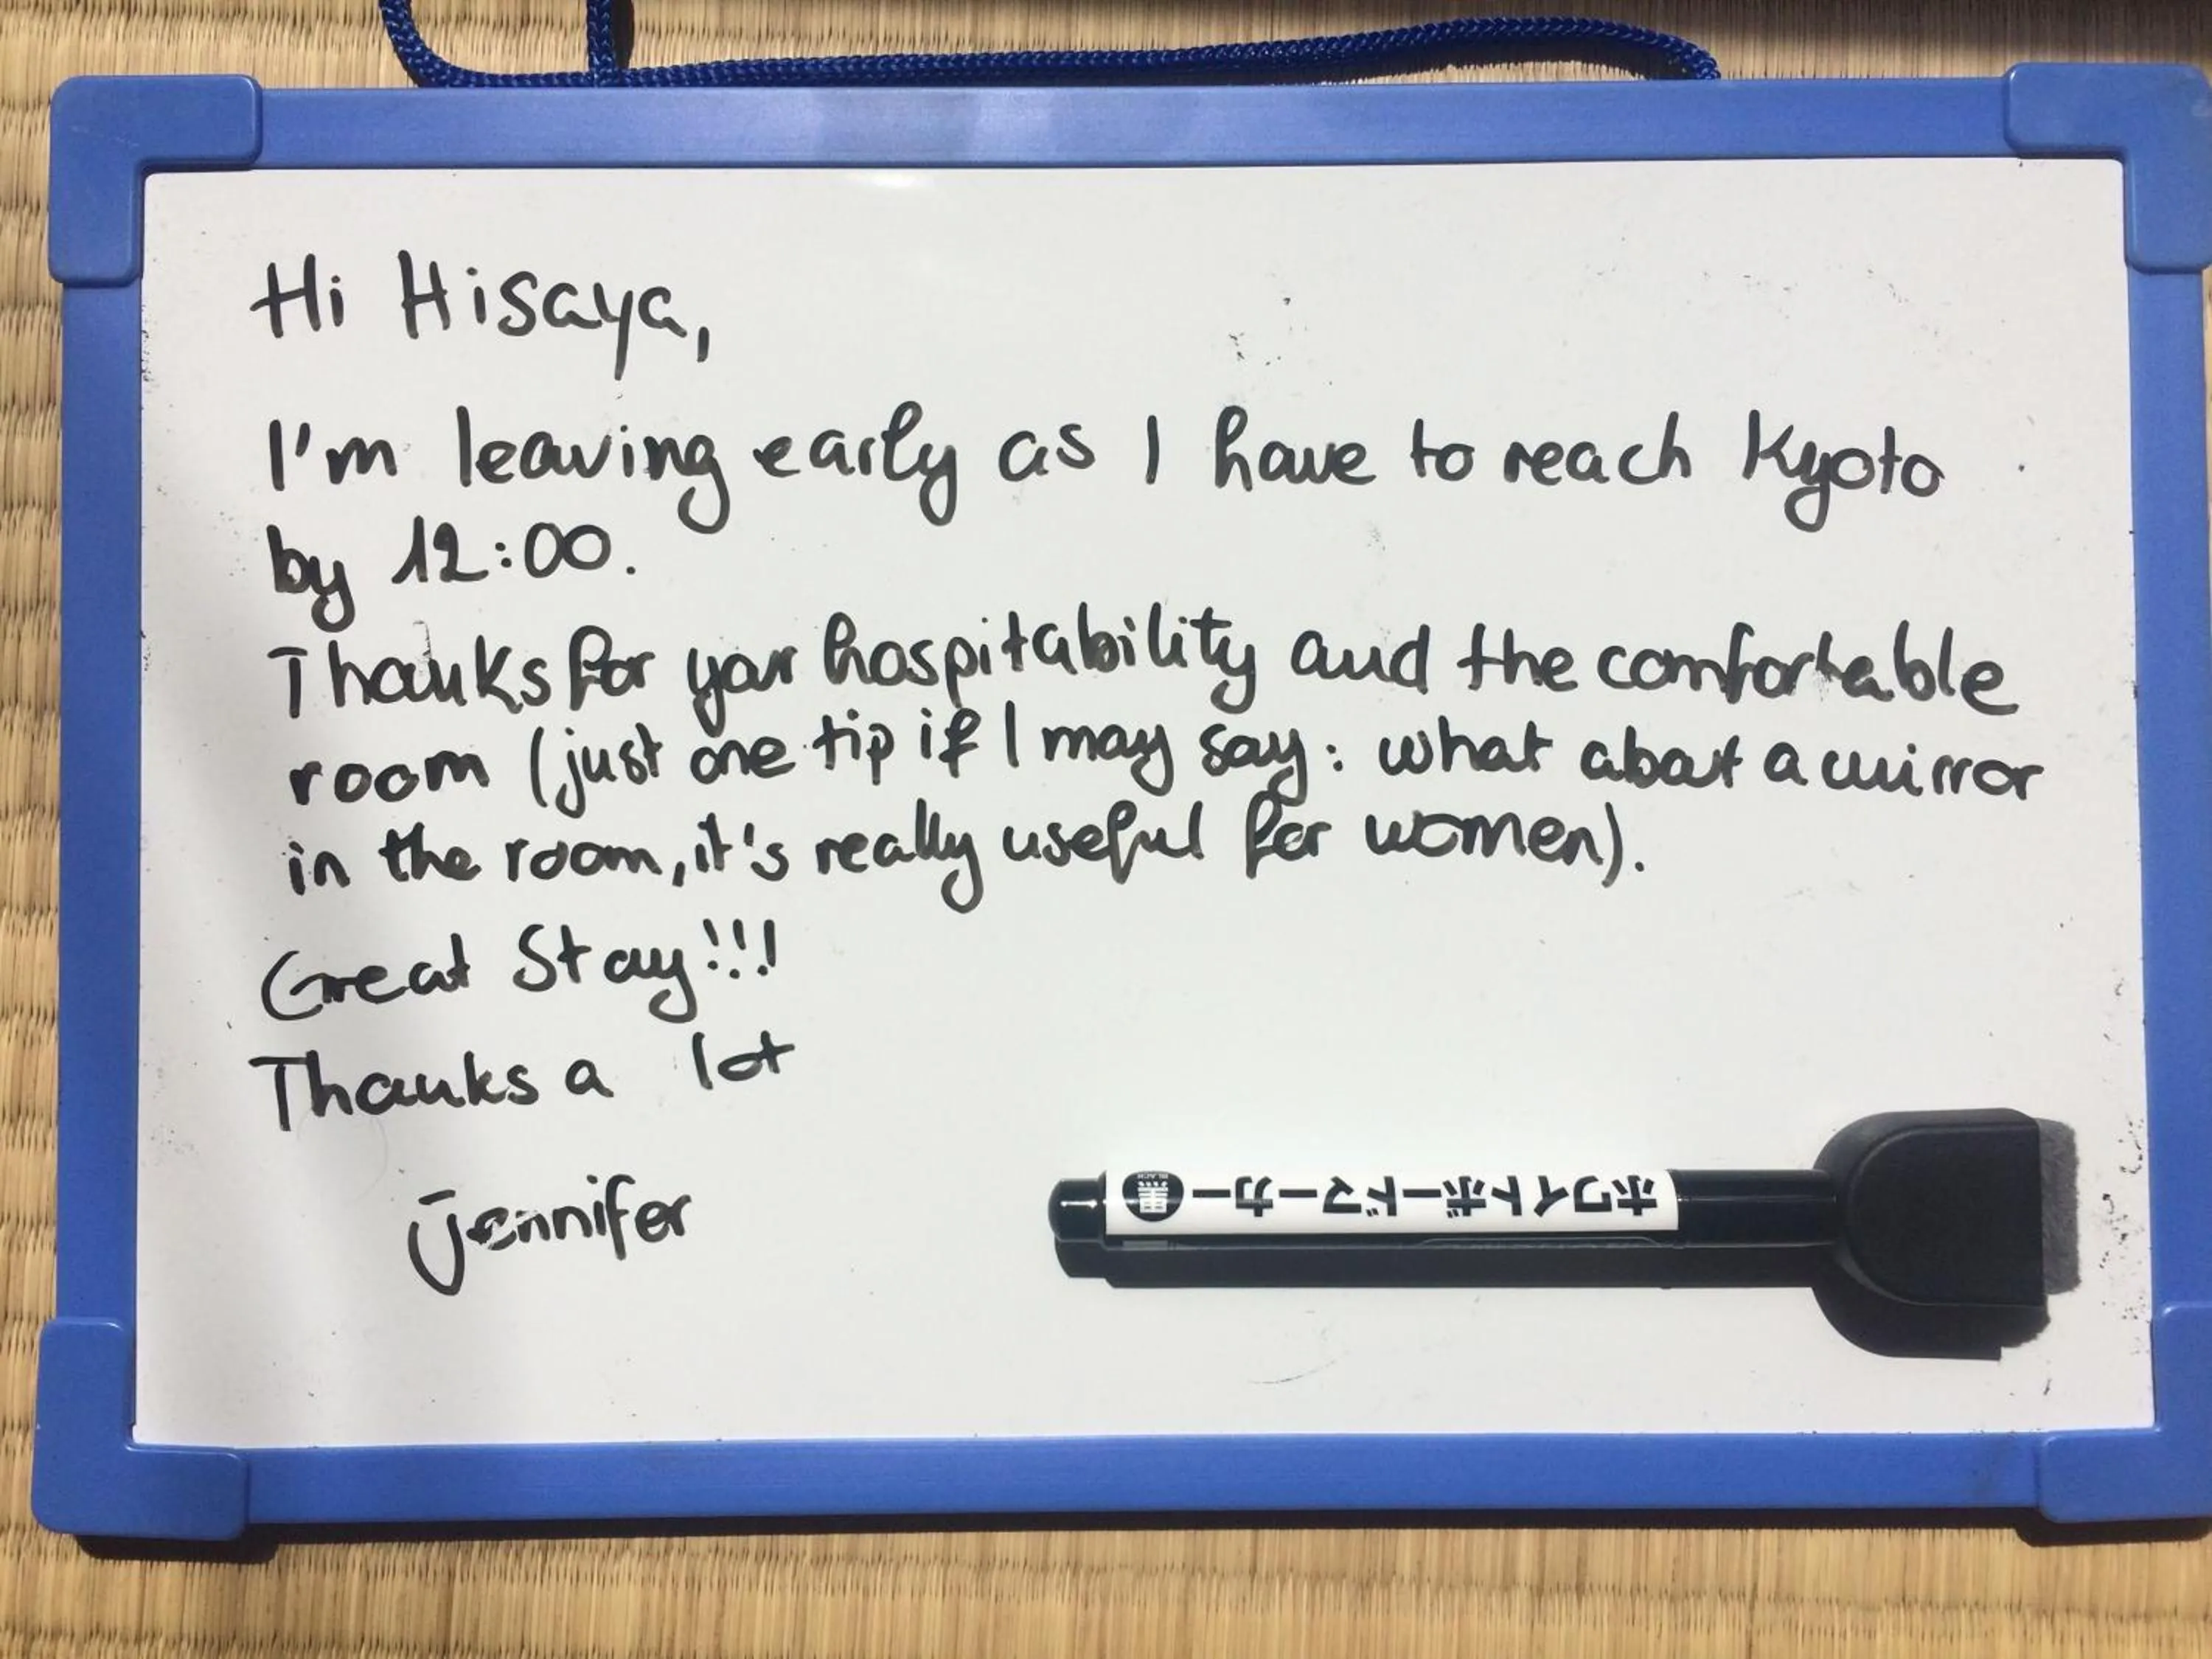 Hi Hisaya,
I'm leaving early as I have to reach Kyoto
by 12:00.
Thanks for your hospitability and the comfortable
room (just one tip if I may say: what about a mirror
in the room, it's really useful for women).
Great Stay!!!
Thanks a lot
Jennifer
ホワイトボードマーカー 黒
BLACK